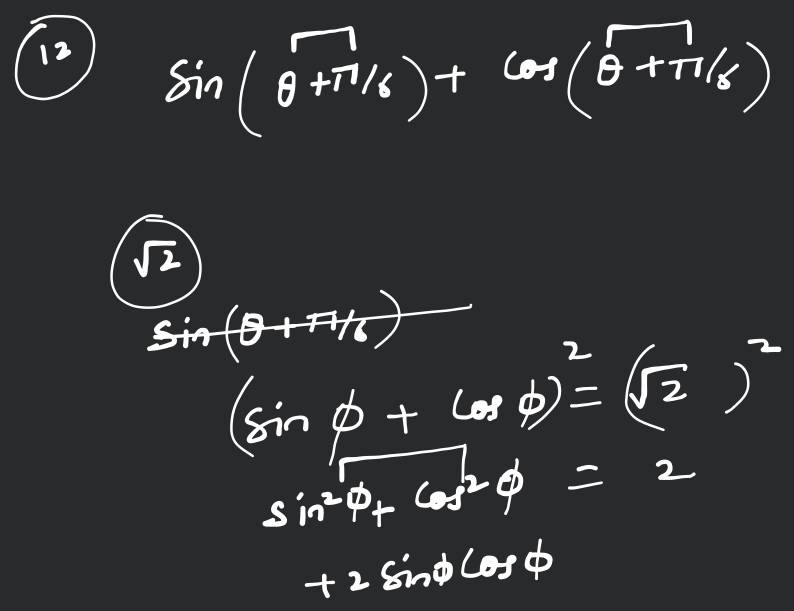 12 sin(θ+π/6)+ cos(θ+π/6)
√2
sin(θ+π/6)
(sin ϕ + cos ϕ)² = (√2 )²
sin²ϕ+ cos²ϕ = 2
+2 sinϕ cos ϕ